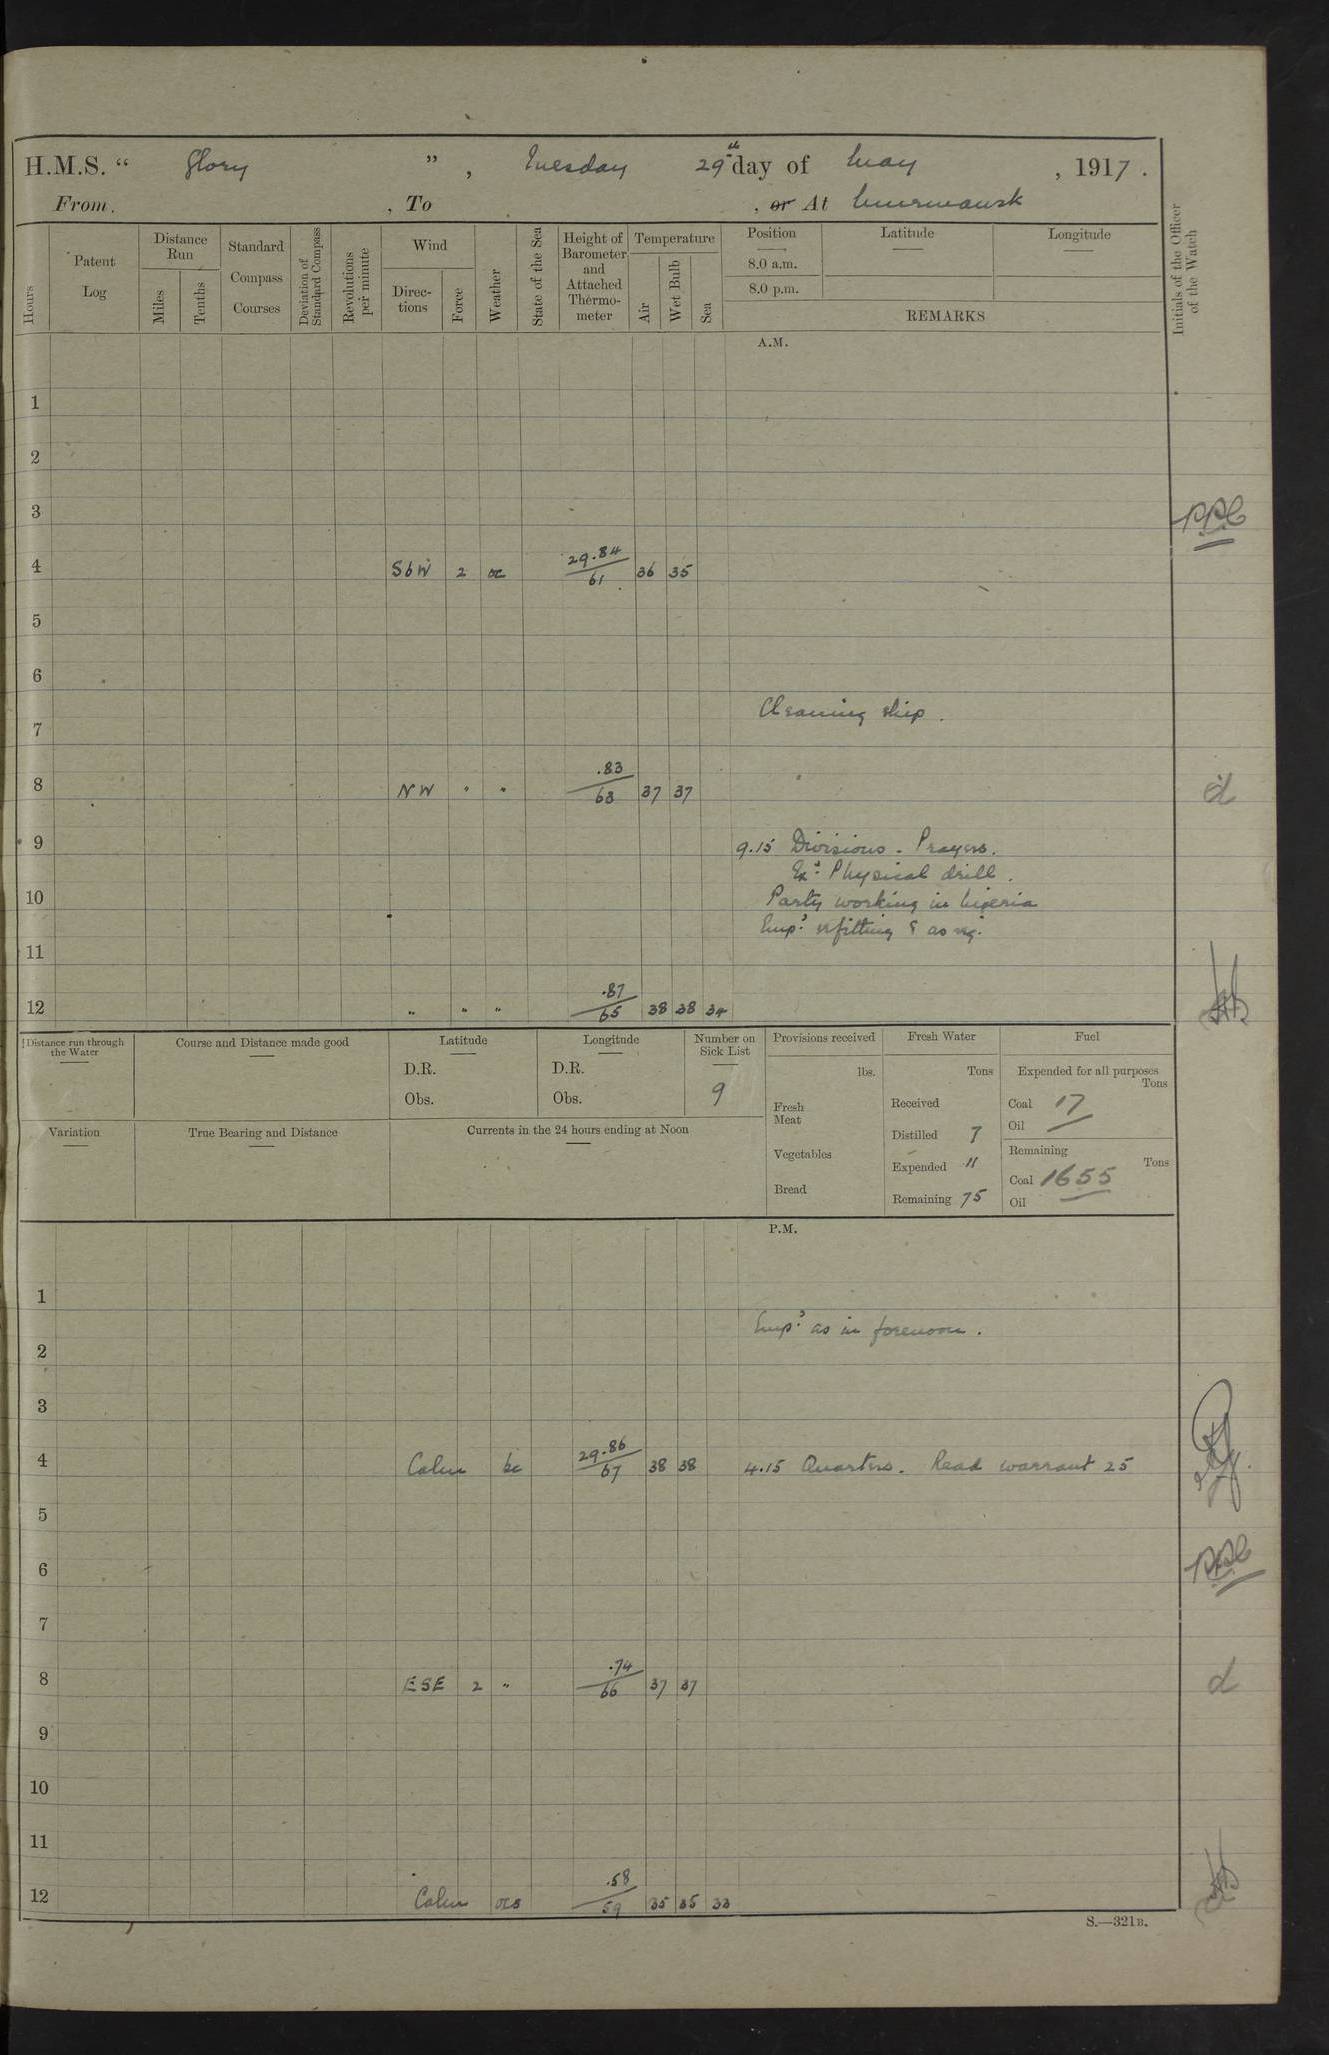 H.M.S. “ Glory ”, Tuesday 29th day of May, 1917.
From , To , or At Murmansk
Hours
Patent Log
Distance Run
Miles
Tenths
Standard Compass Courses
Deviation of Standard Compass
Revolutions per minute
Wind
Directions
Force
Weather
State of the Sea
Height of Barometer and Attached Thermometer
Temperature
Air
Wet Bulb
Sea
Position
8.0 a.m.
8.0 p.m.
Latitude
Longitude
REMARKS
Initials of the Officer of the Watch
A.M.
1
2
3
4 SbW 2 oc 29.84 61 36 35
5
6
Cleaning ship.
7
8 NW " " .83 63 37 37
d
9
9.15 Divisions - Prayers.
Exd Physical drill.
10
Party working in Nigeria
Empd refitting & as req.
11
12 " " " .87 65 38 38 34
Distance run through the Water
Course and Distance made good
Latitude
D.R.
Obs.
Longitude
D.R.
Obs.
Number on Sick List
9
Provisions received
lbs.
Fresh Meat
Vegetables
Bread
Fresh Water
Tons
Received
Distilled 7
Expended 11
Remaining 75
Fuel
Expended for all purposes
Tons
Coal 17
Oil
Remaining
Tons
Coal 1655
Oil
Variation
True Bearing and Distance
Currents in the 24 hours ending at Noon
P.M.
1
Empd as in forenoon.
2
3
4 Calm bc 29.86 67 38 38 4.15 Quarters. Read warrant 25
5
6
7
8 ESE 2 " .74 66 37 37
d
9
10
11
12 Calm ocs .58 59 35 35 33
S.—321B.